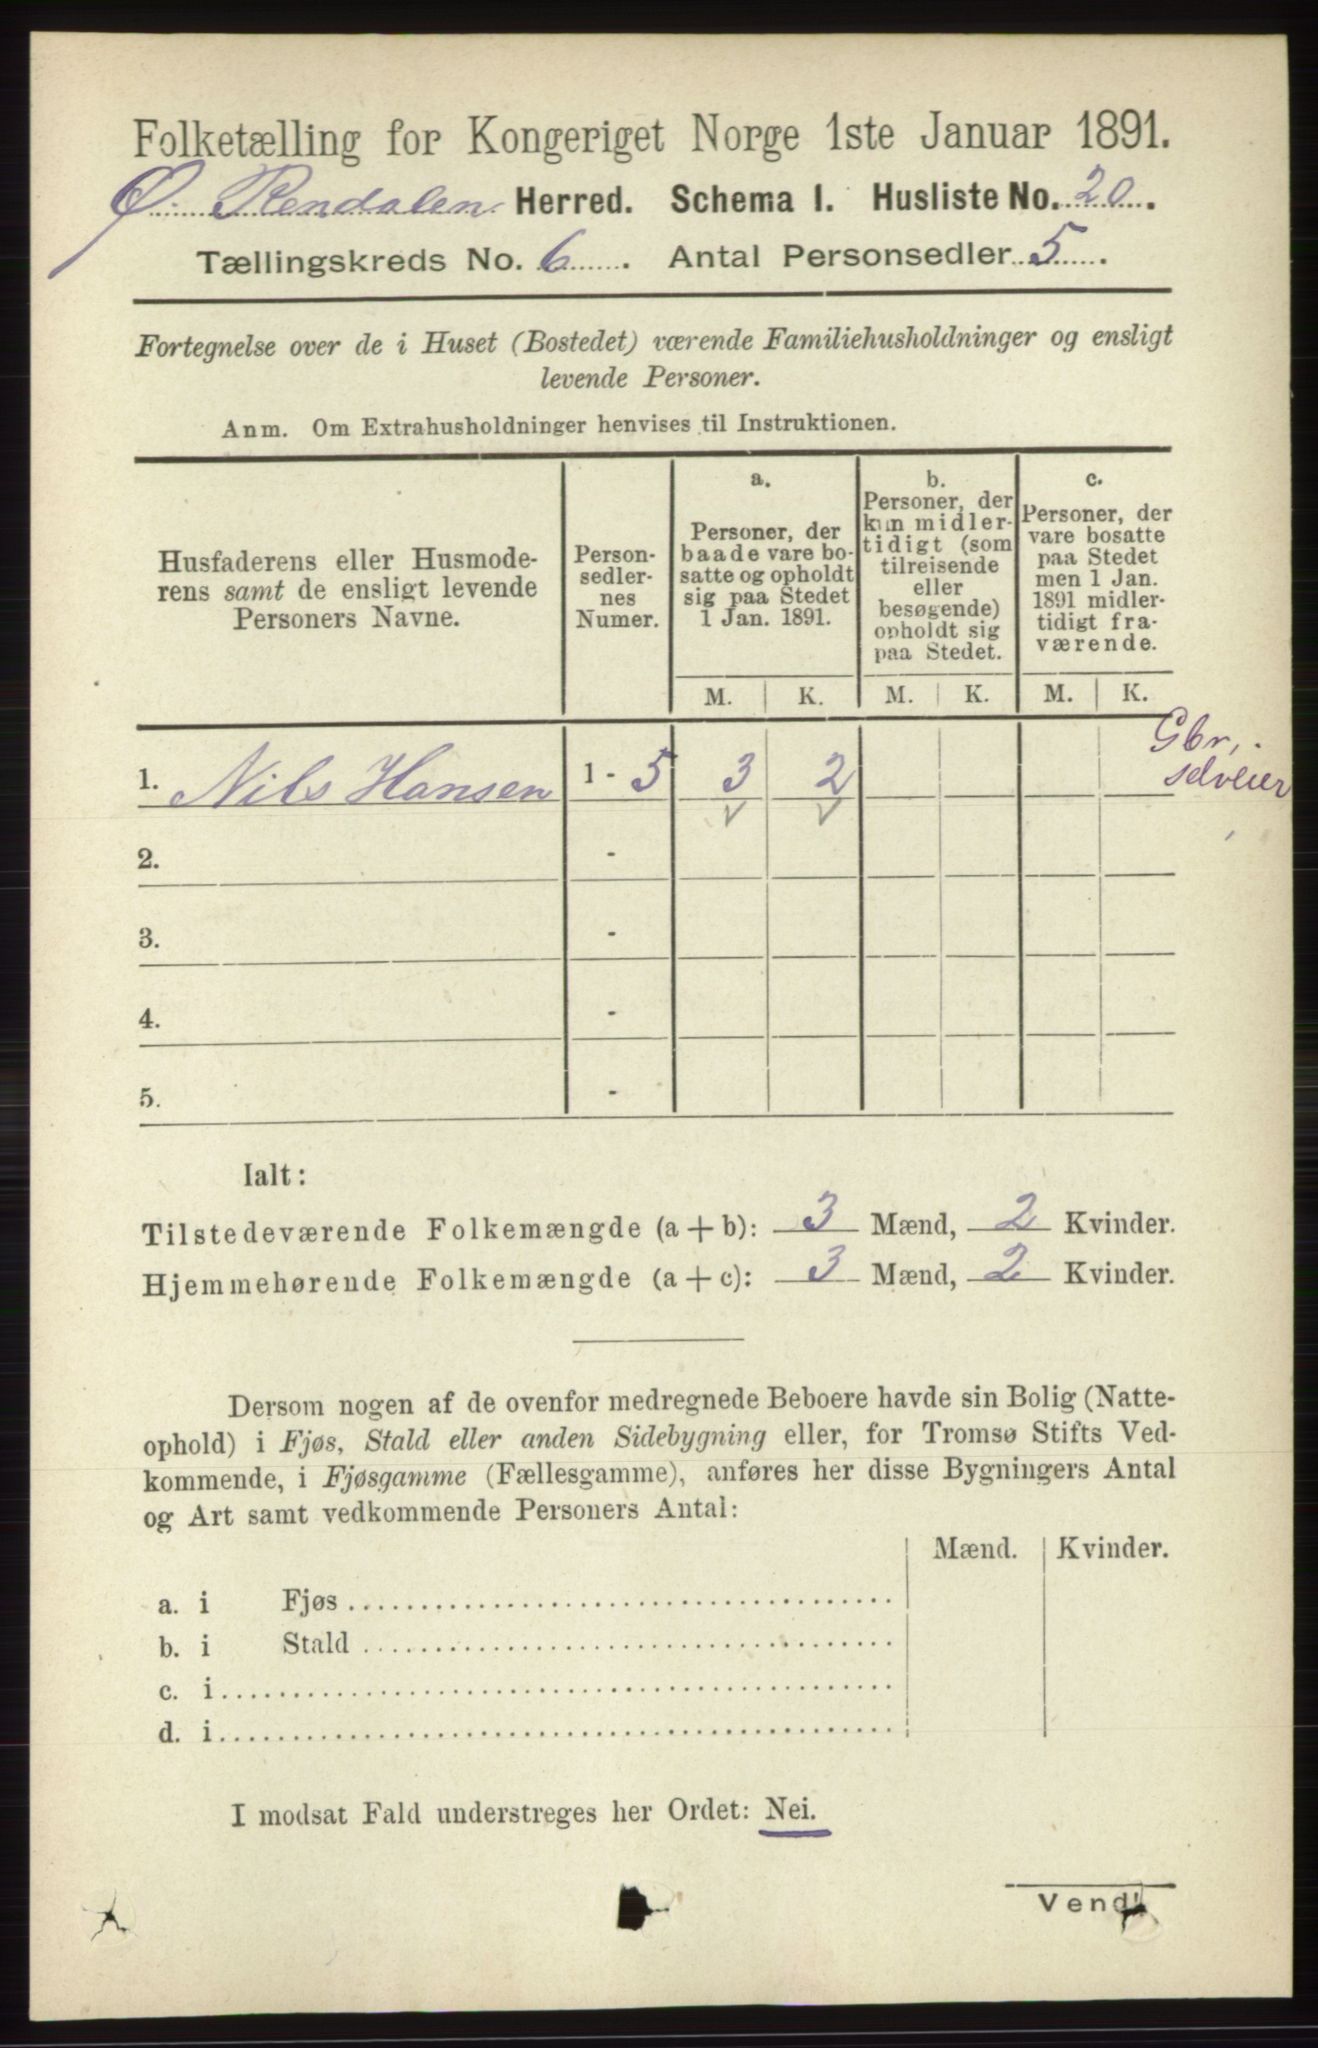 Folketælling for Kongeriget Norge 1ste Januar 1891.
Ø. Rendalen Herred. Schema I. Husliste No. 20.
Tællingskreds No. 6. Antal Personsedler 5.
Fortegnelse over de i Huset (Bostedet) værende Familiehusholdninger og ensligt
levende Personer.
Anm. Om Extrahusholdninger henvises til Instruktionen.
Husfaderens eller Husmode-
rens samt de ensligt levende
Personers Navne.
Person-
sedler-
nes
Numer.
a.
Personer, der
baade vare bo-
satte og opholdt
sig paa Stedet
1 Jan. 1891.
b.
Personer, der
kun midler-
tidigt (som
tilreisende
eller
besøgende)
opholdt sig
paa Stedet.
c.
Personer, der
vare bosatte
paa Stedet
men 1 Jan.
1891 midler-
tidigt fra-
værende.
M. K. M. K. M. K.
1. Nils Hansen 1 - 5 3 2 Gbr,.
selveier
2. -
3. -
4. -
5. -
Ialt:
Tilstedeværende Folkemængde (a + b): 3 Mænd, 2 Kvinder.
Hjemmehørende Folkemængde (a + c): 3 Mænd, 2 Kvinder.
Dersom nogen af de ovenfor medregnede Beboere havde sin Bolig (Natte-
ophold) i Fjøs, Stald eller anden Sidebygning eller, for Tromsø Stifts Ved-
kommende, i Fjøsgamme (Fællesgamme), anføres her disse Bygningers Antal
og Art samt vedkommende Personers Antal:
Mænd. Kvinder.
a. i Fjøs
b. i Stald
c. i
d. i
I modsat Fald understreges her Ordet: Nei.
Vend!